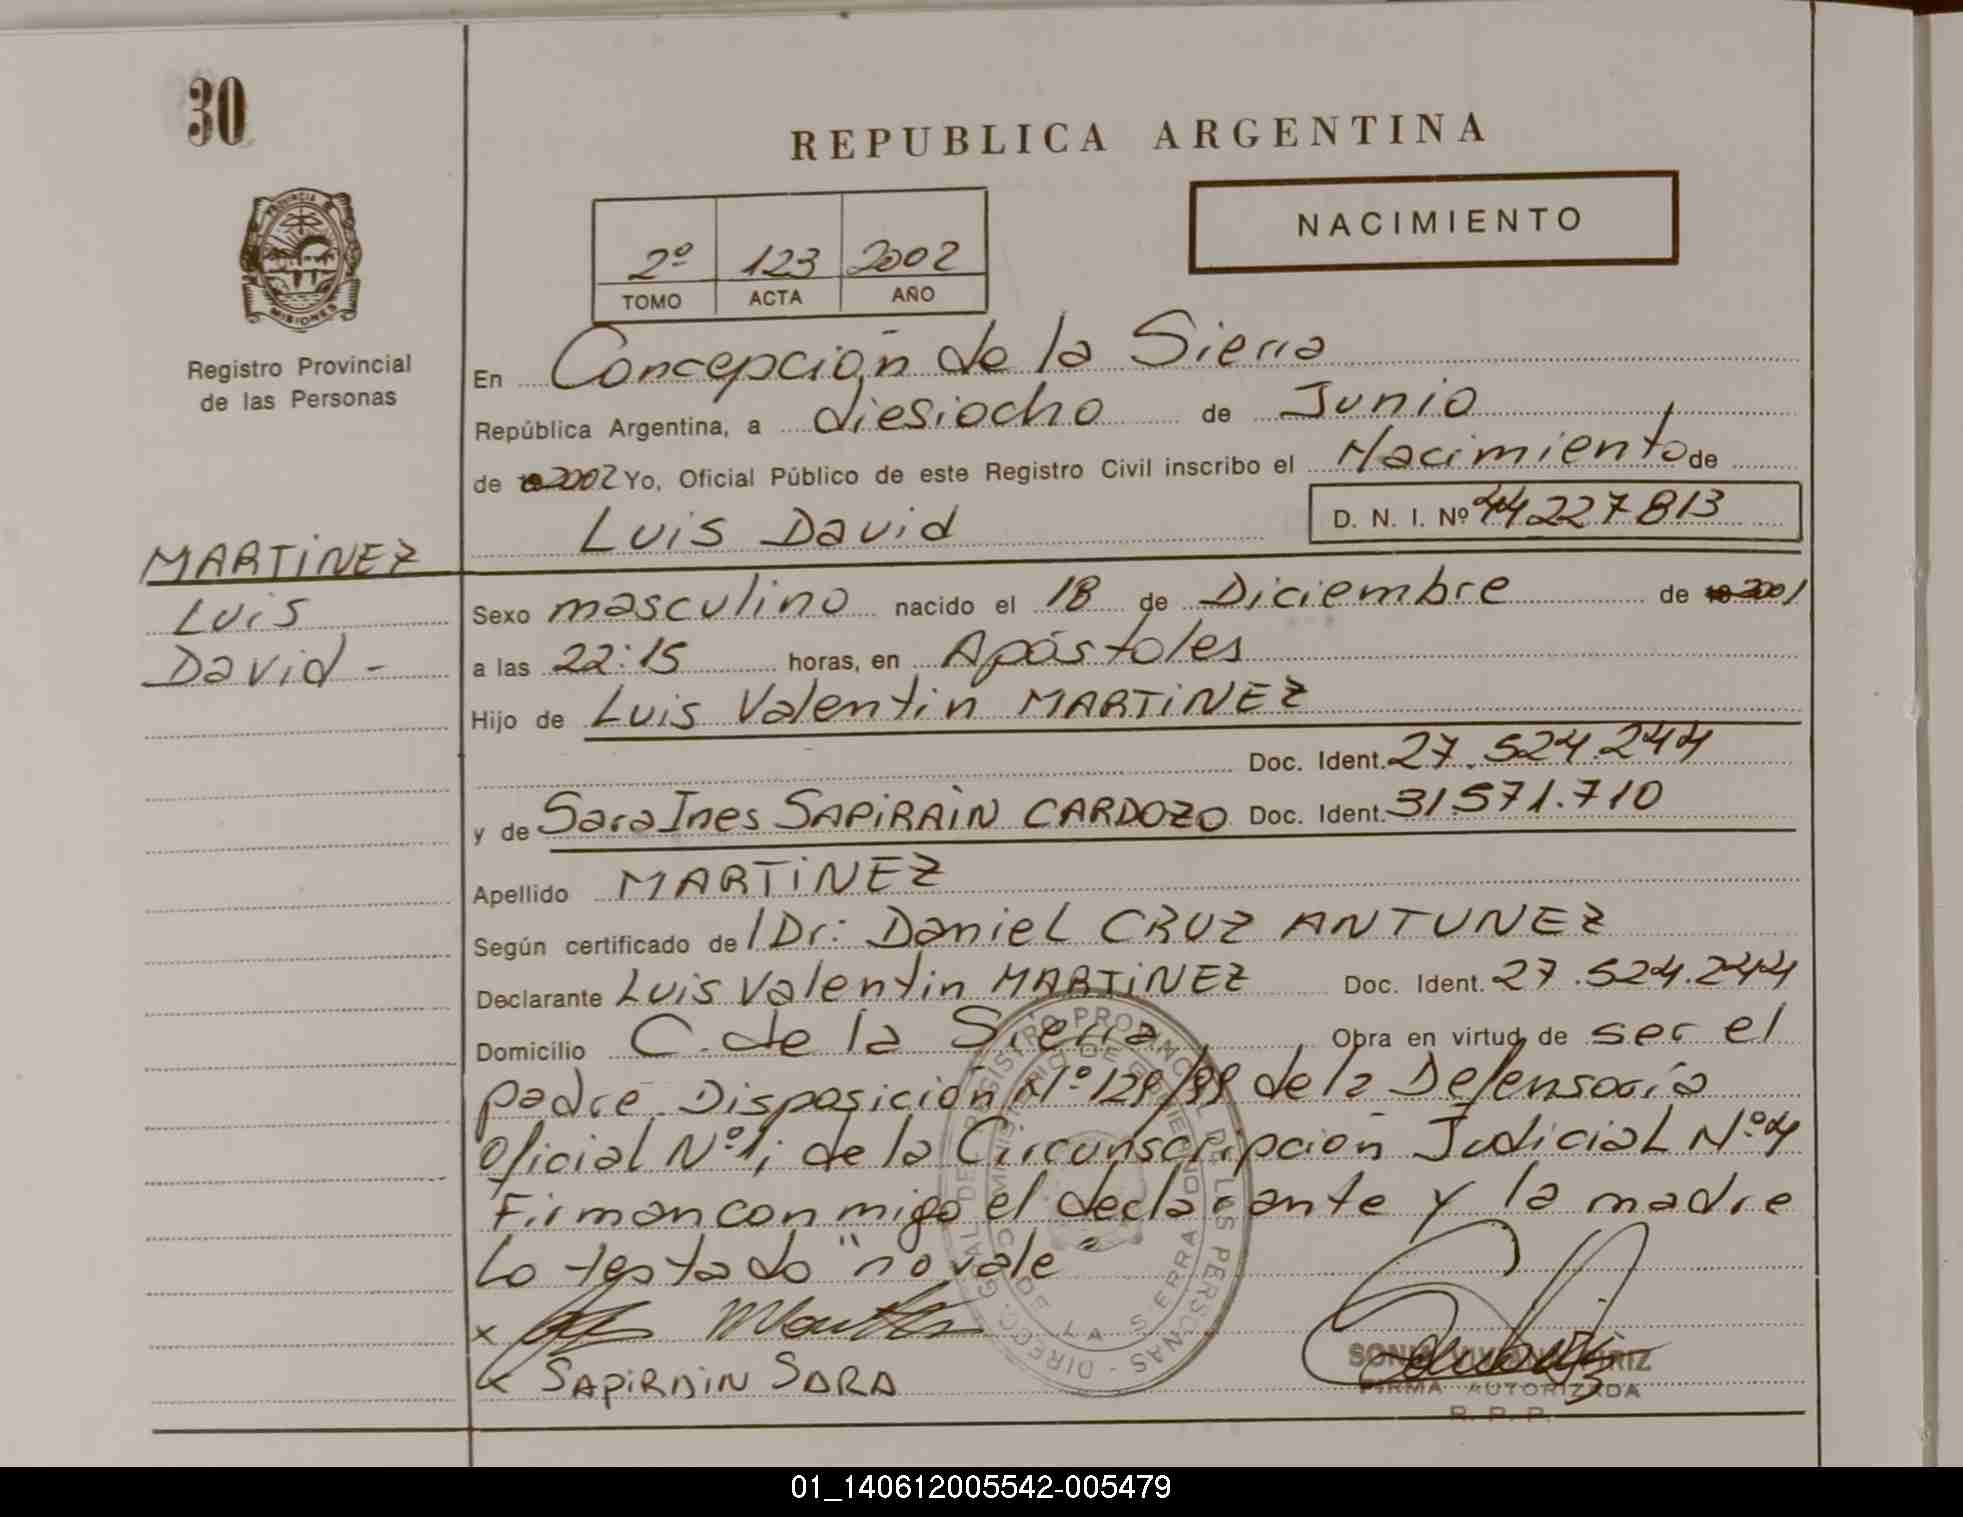 30
REPUBLICA ARGENTINA
PROVINCIA DE
MISIONES
Registro Provincial
de las Personas
2º 123 2002
TOMO ACTA AÑO
NACIMIENTO
En Concepción de la Sierra
República Argentina, a diesiocho de Junio
de 2002 Yo, Oficial Público de este Registro Civil inscribo el Nacimiento de
Luis David D. N. I. Nº 44227813
MARTINEZ
Luis
David -
Sexo masculino nacido el 18 de Diciembre de 2001
a las 22:15 horas, en Apóstoles
Hijo de Luis Valentin MARTINEZ
Doc. Ident. 27.524.244
y de Sara Ines SAPIRAIN CARDOZO Doc. Ident. 31.571.710
Apellido MARTINEZ
Según certificado de Dr: Daniel CRUZ ANTUNEZ
Declarante Luis Valentin MARTINEZ Doc. Ident. 27.524.244
Domicilio C. de la Sierra Obra en virtud de ser el
padre. Disposición Nº 129/99 de la Defensoría
Oficial Nº1, de la Circunscripción Judicial Nº4
Firman conmigo el declarante y la madre
Lo testado "no vale"
x
x SAPIRAIN SARA
DIRECC. GRAL DEL REGISTRO PROVINCIAL DE LAS PERSONAS
MINISTERIO DE GOBIERNO
DE LA SIERRA
FIRMA AUTORIZADA
R. P. P.
01_140612005542-005479